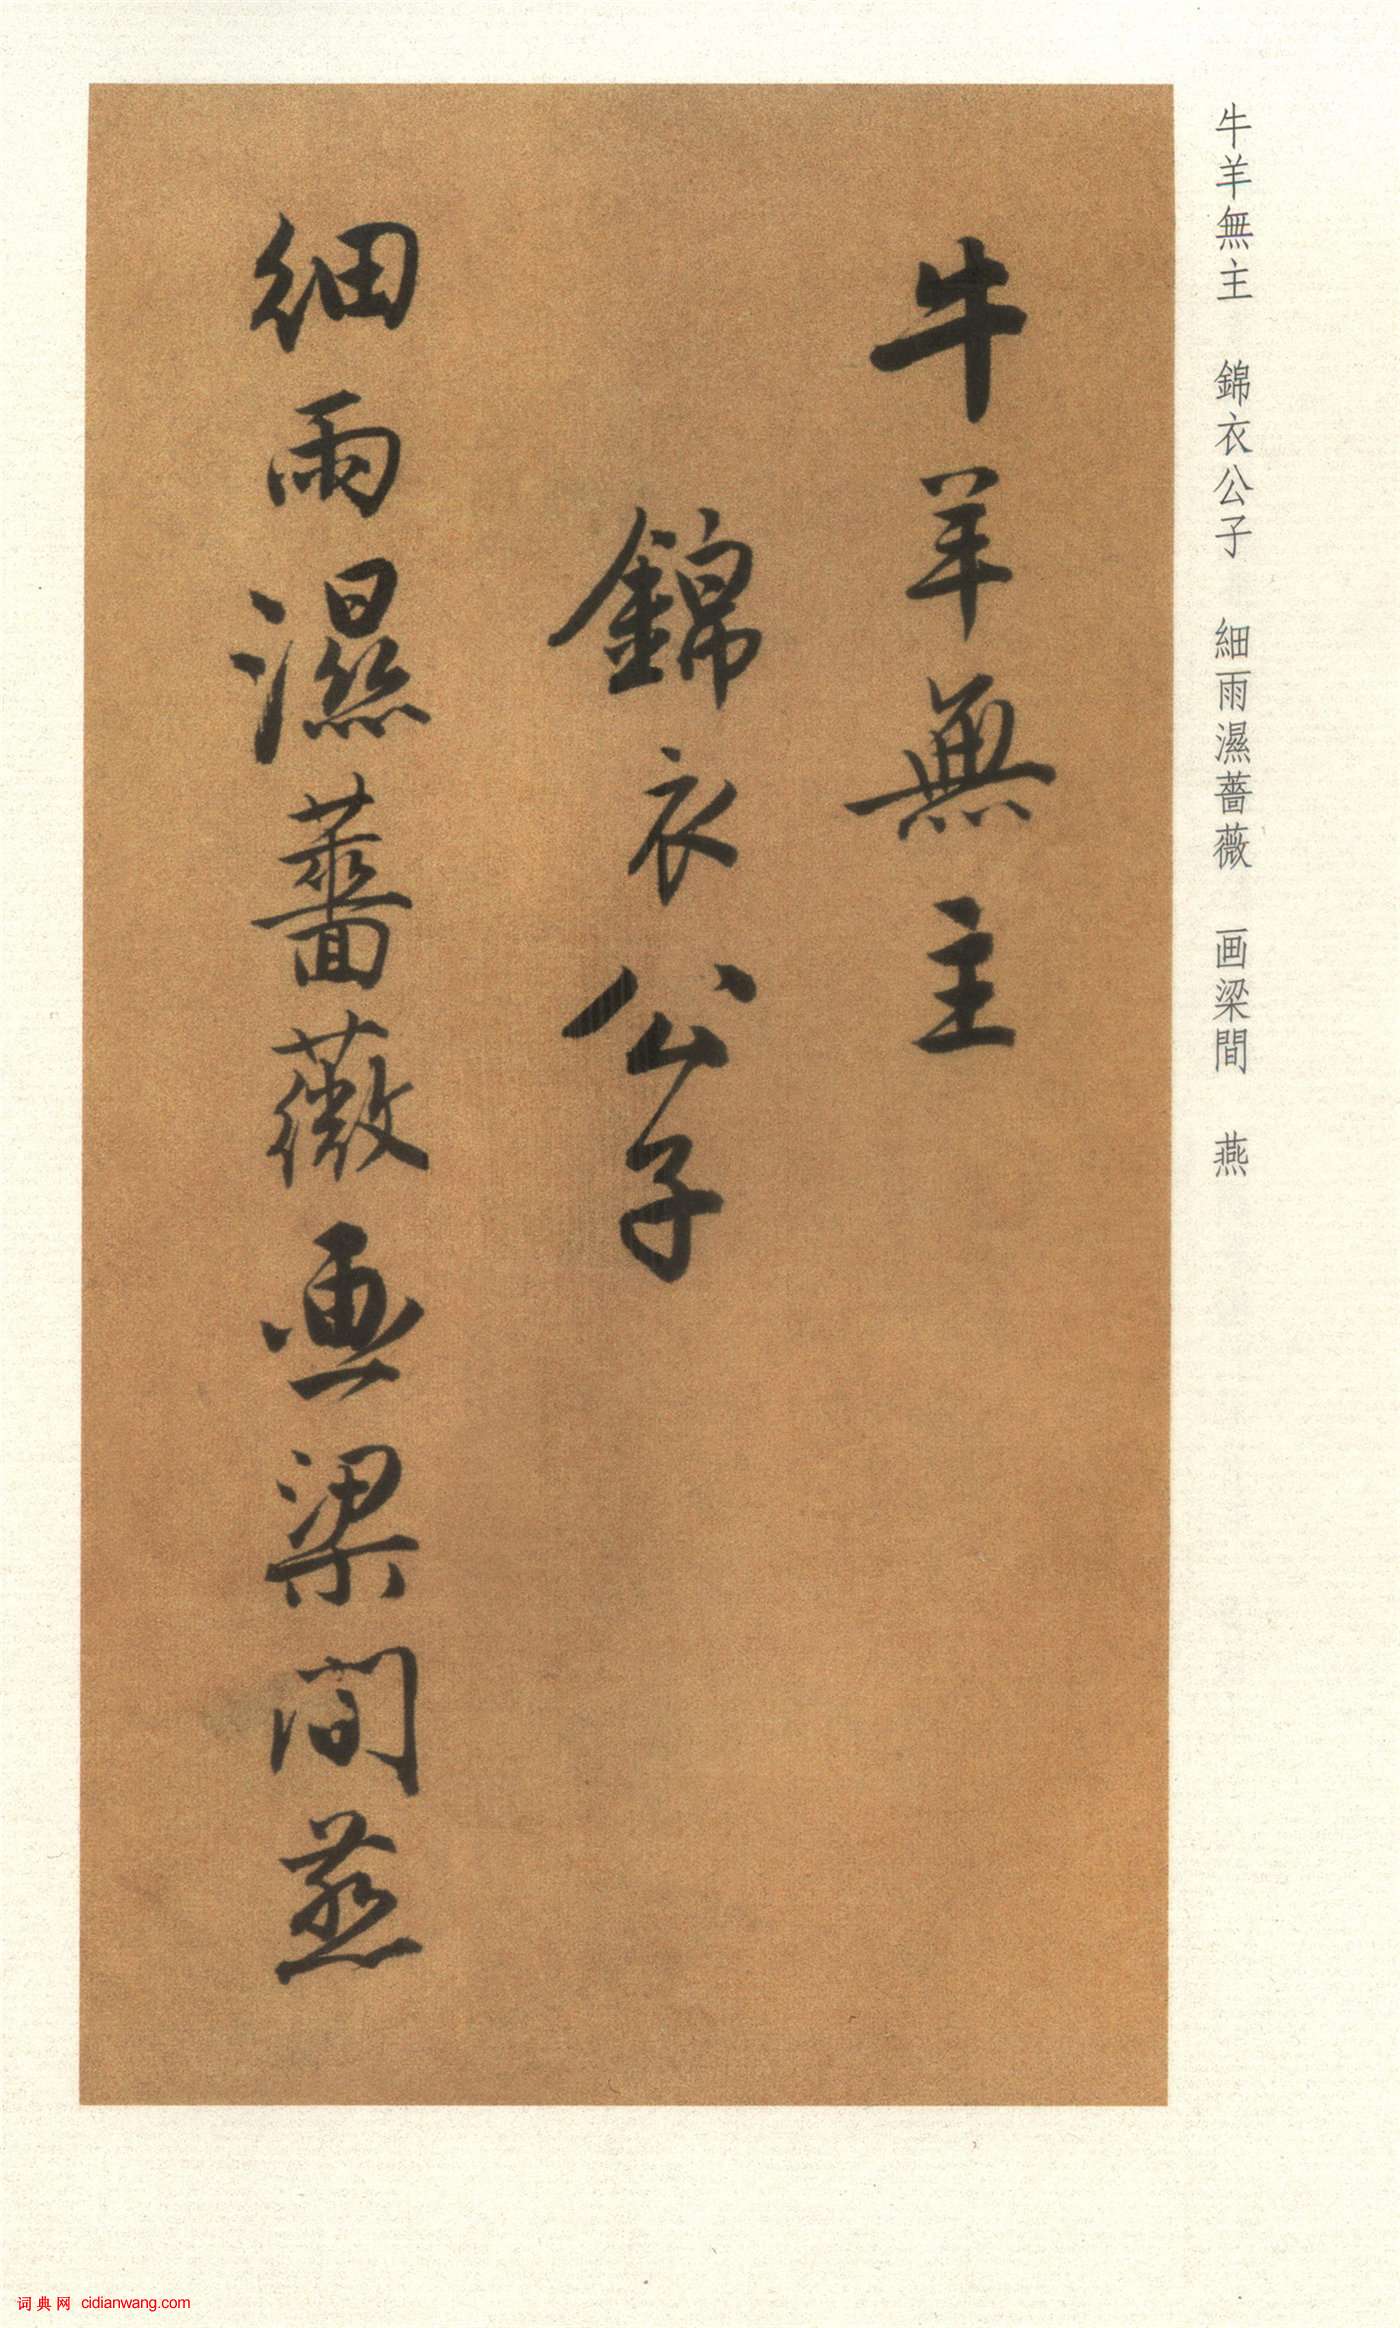 牛羊無主　錦衣公子　細雨濕薔薇　画梁間　燕
牛羊無主
錦衣公子
細雨濕薔薇画梁間燕
词典网 cidianwang.com